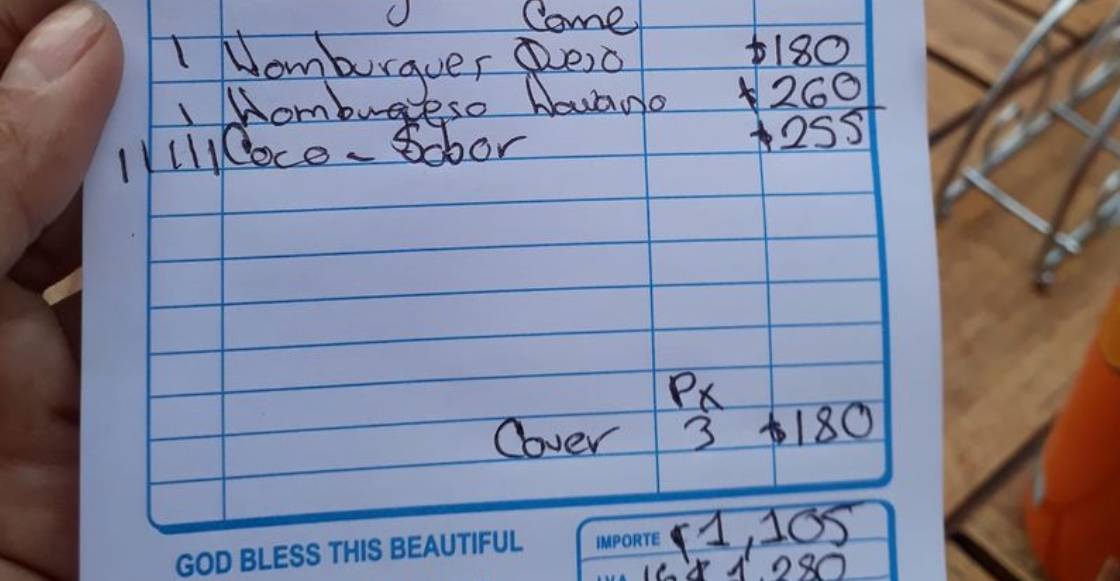 Carne
1 Hamburguer Queso $180
1 Hamburguesa Hawano $260
11111 Coca - Sabor $255
Px
Cover 3 $180
IMPORTE $1,105
GOD BLESS THIS BEAUTIFUL
I.V.A. 16 $1,280